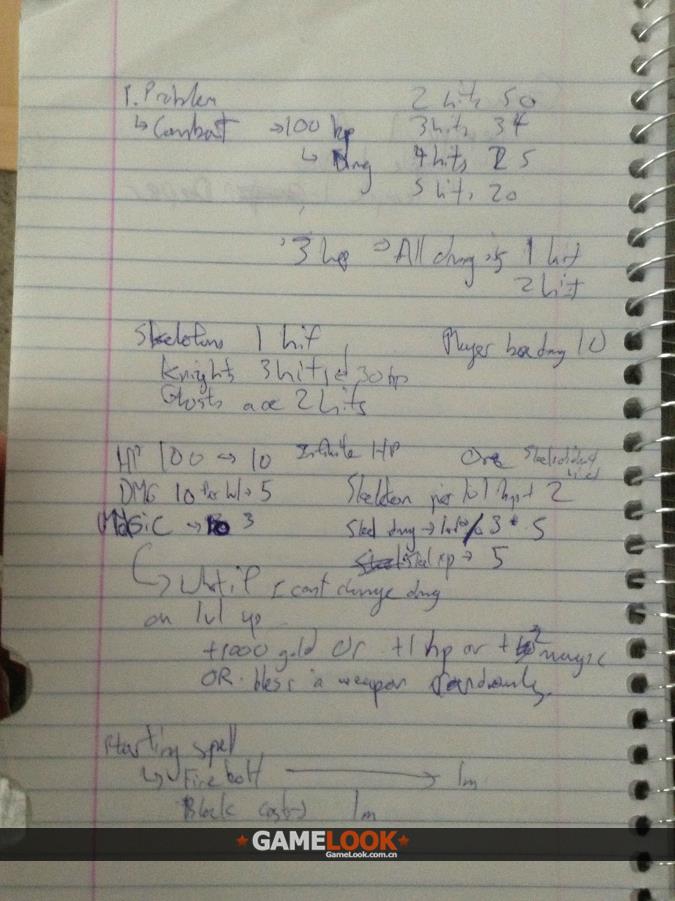 1. Problem
2 hits 50
↳ Combat → 100 hp
3 hits 34
↳ Dmg
4 hits 25
5 hits 20
3 hp ⇒ All dmg is 1 hit
2 hit
Skeletons 1 hit
Player base dmg 10
Knights 3 hits 30 hp
Ghosts are 2 hits
HP 100 → 10 Infinite HP
One
DMG 10 Per lvl → 5
Skeleton per lvl hp + 2
Magic → 3
Skel dmg → 3 * 5
Skel xp → 5
↳ What if I cant change dmg
on lvl up
+1000 gold or +1 hp or +2 magic
OR bless a weapon randomly
Starting spell
↳ Firebolt → 1m
Block cost 1m
GAMELOOK
GameLook.com.cn